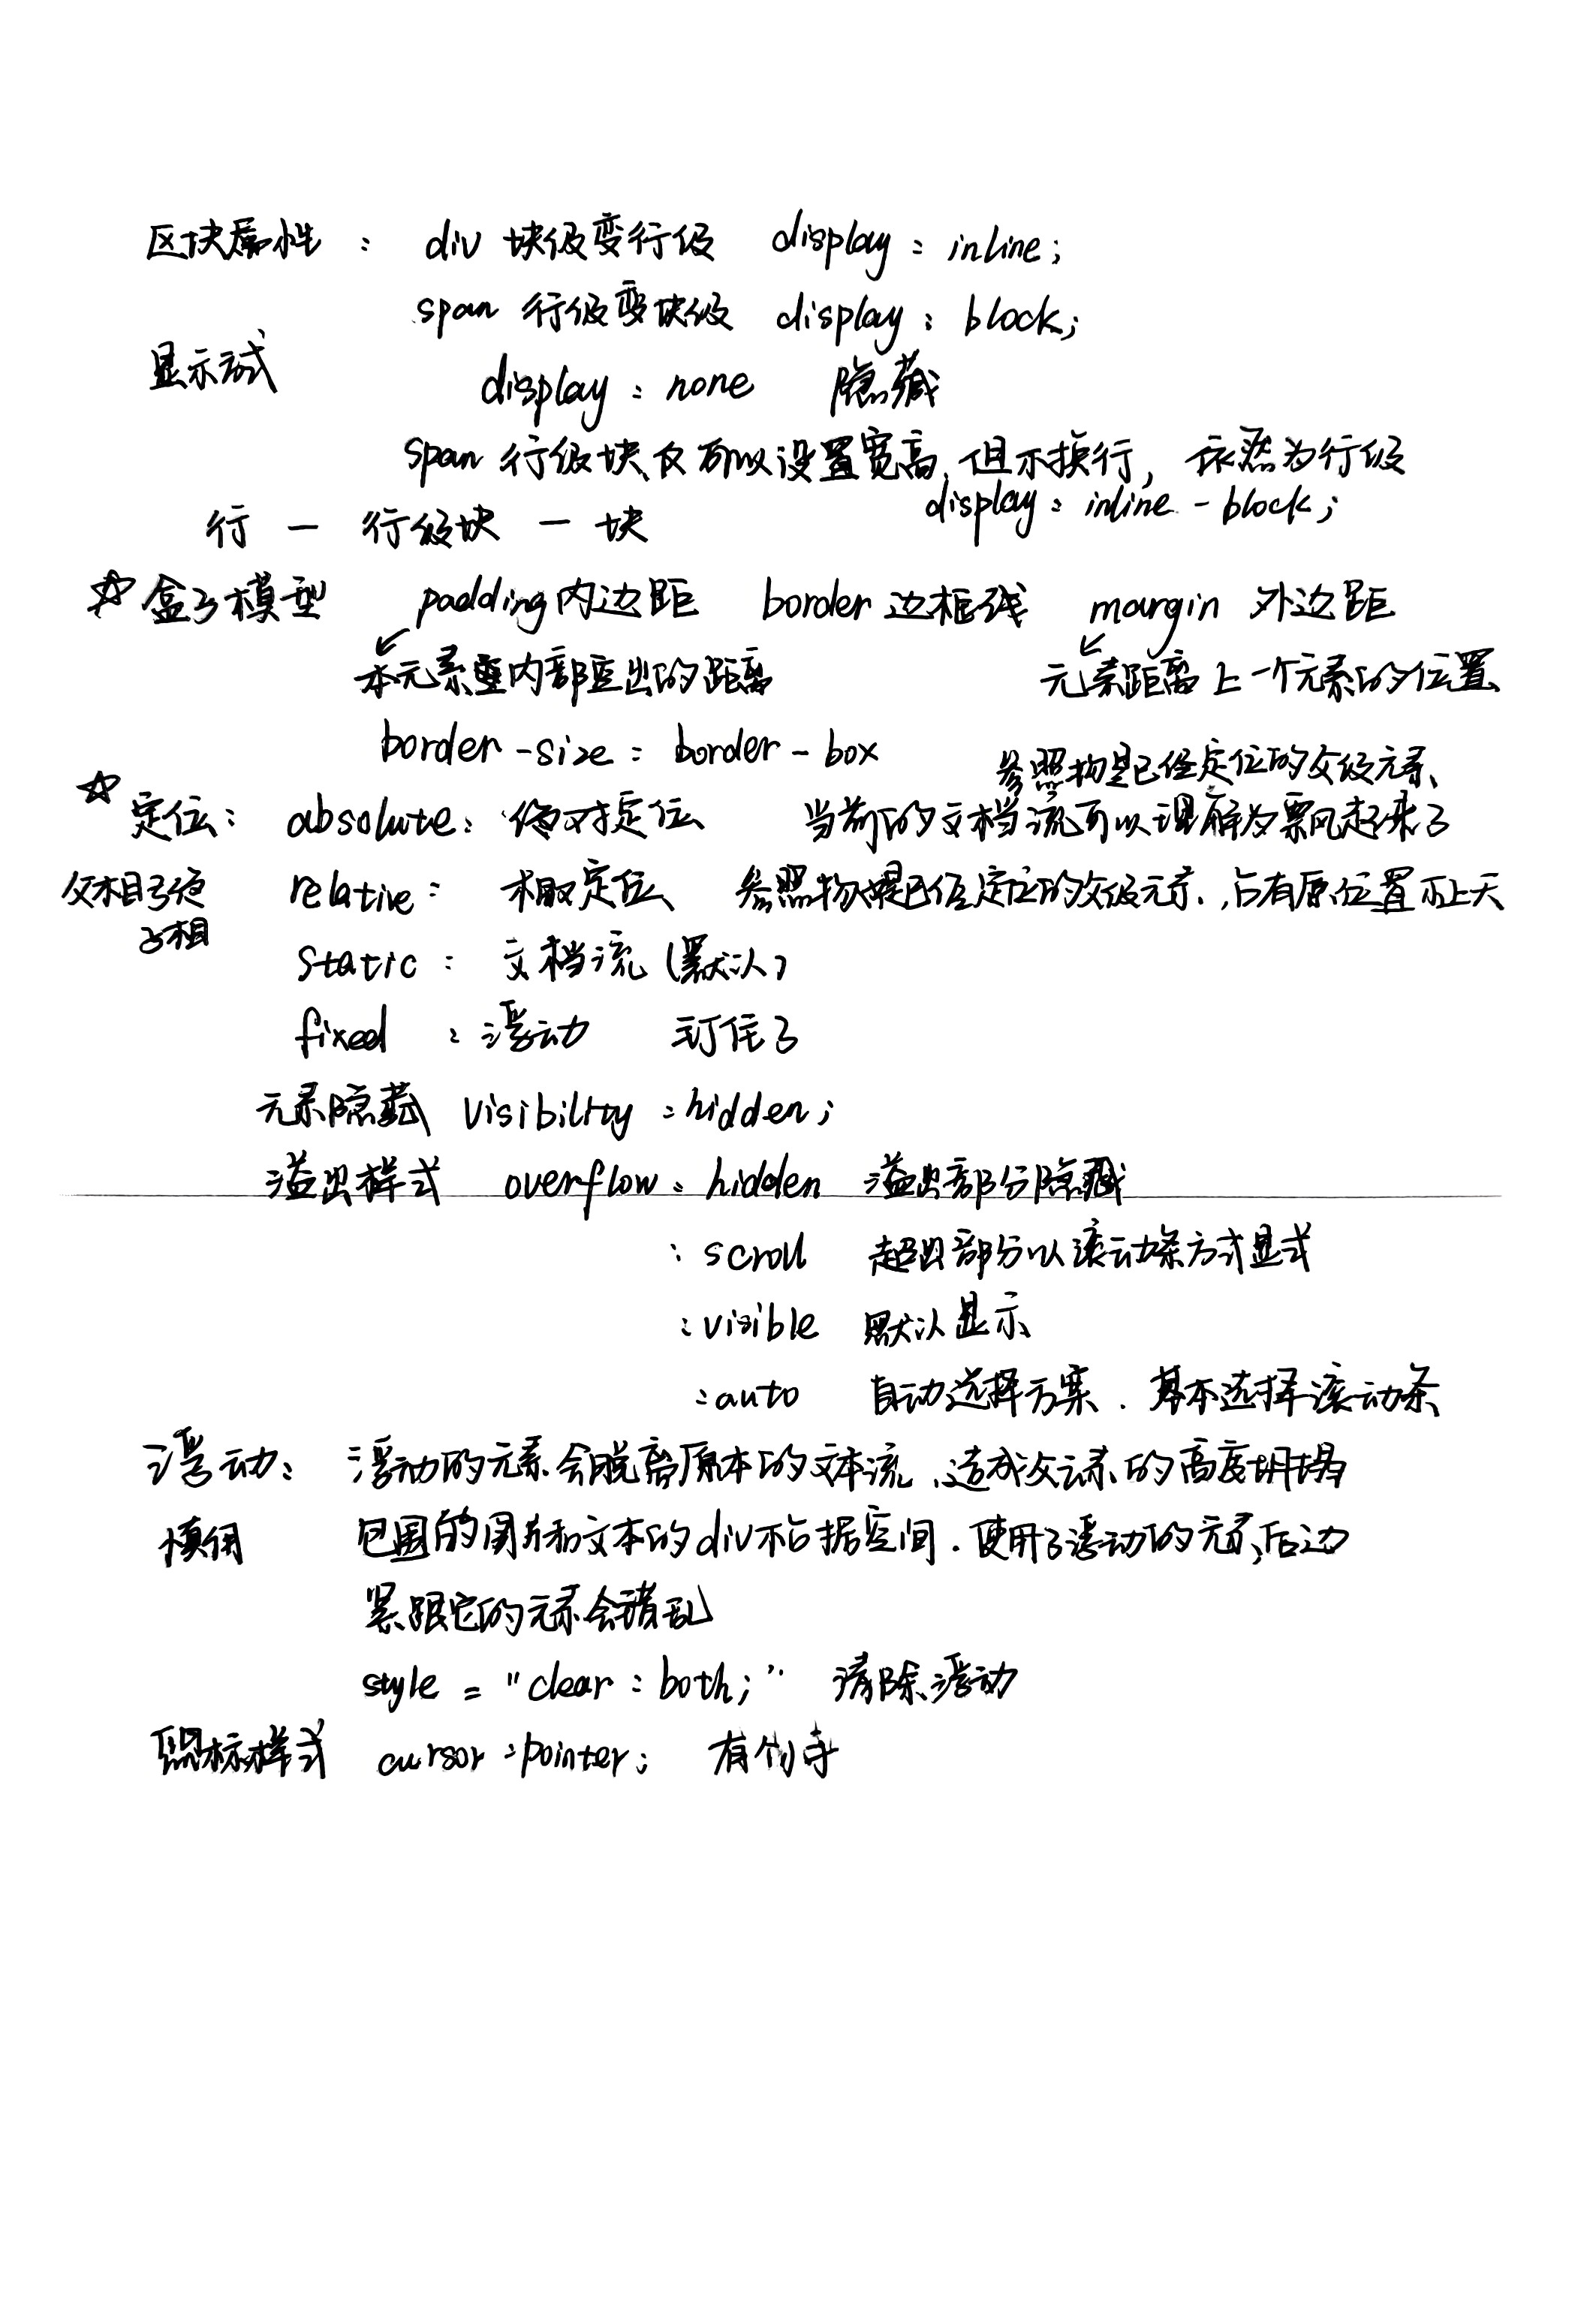 区块属性： div 块级变行级 display：inline；
span 行级变块级 display：block；
显示方式
display：none 隐藏
span 行级块 可以设置宽高，但不换行，依然为行级
display：inline-block；
行 — 行级块 — 块
☆ 盒子模型 padding 内边距 border 边框线 margin 外边距
本元素 内部 出的距离 元素距离上一个元素的位置
border-size：border-box
参照物是已经定位的父级元素、
☆ 定位： absolute：绝对定位 当前的文档流可以理解为飘起来了
父相子绝 relative： 相对定位 参照物是已经定位的父级元素，占有原位置不上天
子相
static： 文档流（默认）
fixed ：浮动 钉住了
元素隐藏 visibility：hidden；
溢出样式 overflow：hidden 溢出部分隐藏
：scroll 超出部分以滚动条方式显式
：visible 默认显示
：auto 自动选择方案．基本选择滚动条
浮动： 浮动的元素会脱离原本的文本流，造成父元素的高度坍塌
慎用 包围的图片和文本的div不占据空间．使用了浮动的元素，后边
紧跟它的元素会错乱
style = "clear：both；" 清除浮动
鼠标样式 cursor：pointer； 有个手